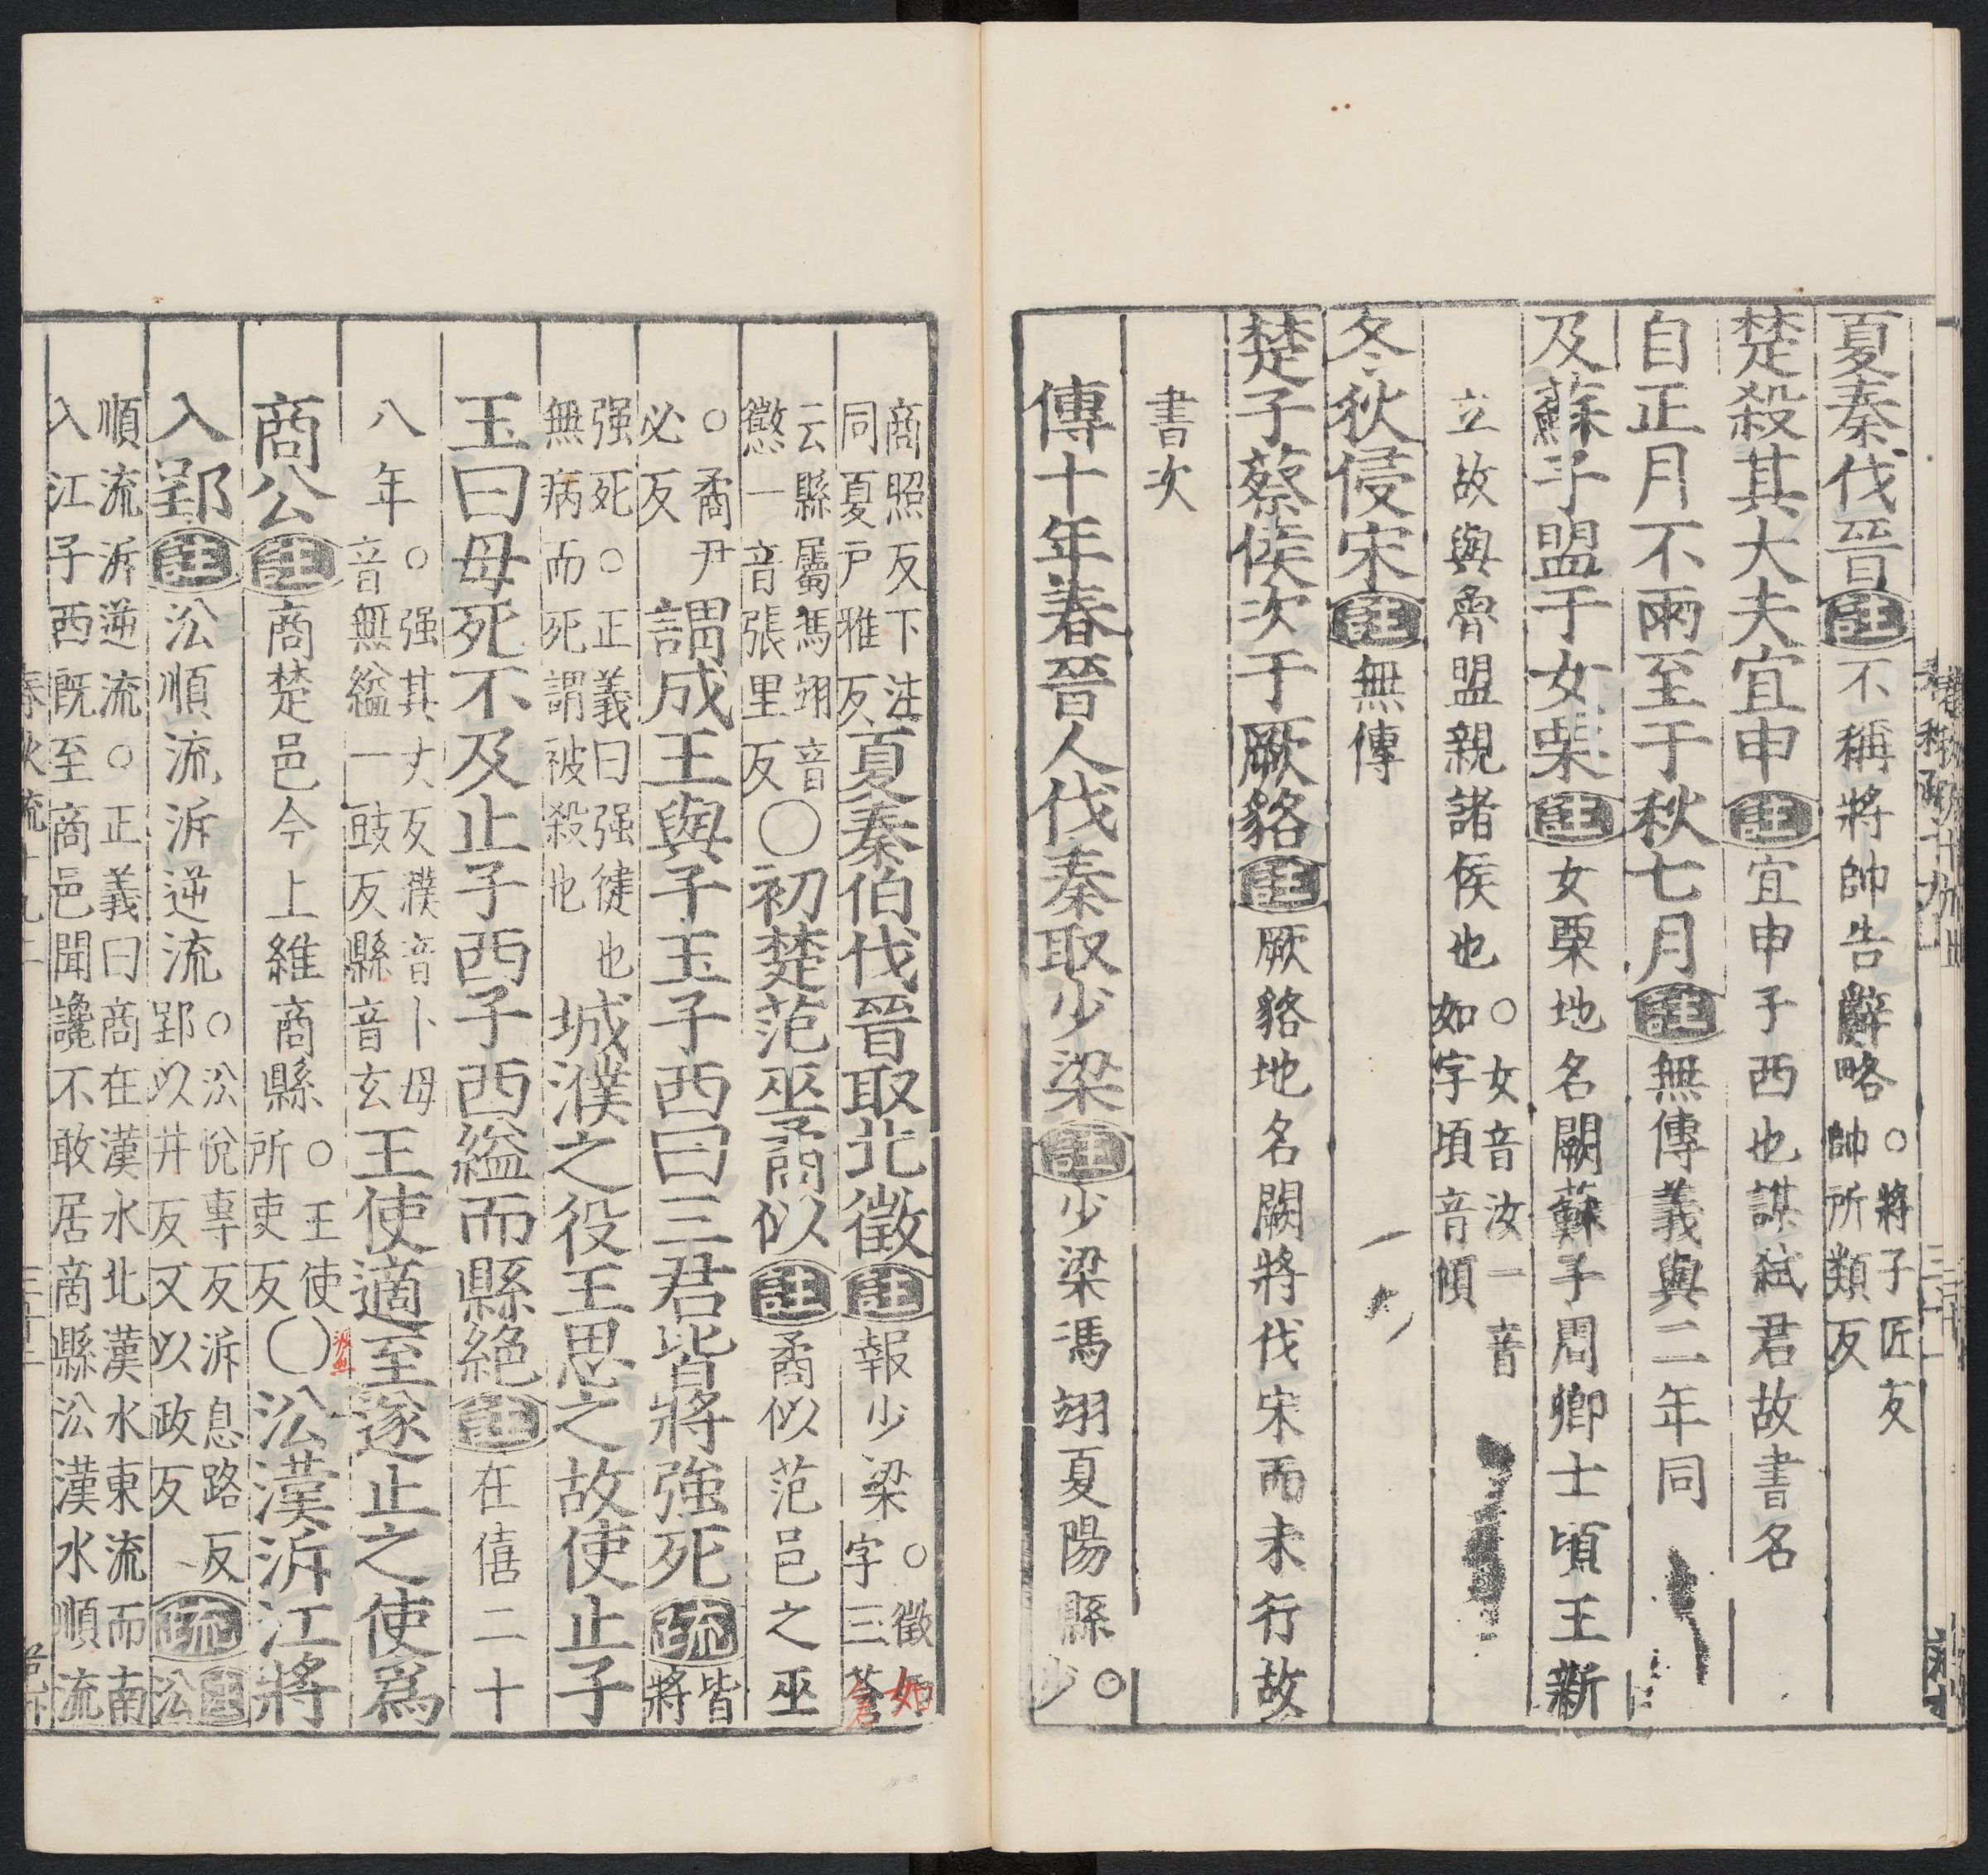 夏秦伐晉註不稱將帥告辭略○將子匠反帥所類反
楚殺其大夫宜申註宜申子西也謀弒君故書名
自正月不雨至于秋七月註無傳義與二年同
及蘇子盟于女栗註女栗地名闕蘇子周卿士頃王新
立故與魯盟親諸侯也○女音汝一音如字頃音傾
冬狄侵宋註無傳
楚子蔡侯次于厥貉註厥貉地名闕將伐宋而未行故
書次
傳十年春晉人伐秦取少梁註少梁馮翊夏陽縣○少
商照反下注同夏戶雅反夏秦伯伐晉取北徵註報少梁○徵如字三蒼
云縣屬馮翊音懲一音張里反○初楚范巫矞似註矞似范邑之巫
○矞尹必反謂成王與子玉子西曰三君皆將強死疏皆將
强死○正義曰强徤也無病而死謂被殺也城濮之役王思之故使止子
玉曰毋死不及止子西子西縊而縣絶註在僖二十
八年○强其丈反濮音卜毋音無縊一豉反縣音玄王使適至遂止之使爲
商公註商楚邑今上維商縣○王使所吏反○沿漢泝江將
入郢註沿順流泝逆流○沿悅專反泝息路反郢以井反又以政反疏註沿
順流泝逆流○正義曰商在漢水北漢水東流而南入江子西既至商邑聞讒不敢居商縣沿漢水順流
春秋疏十九上